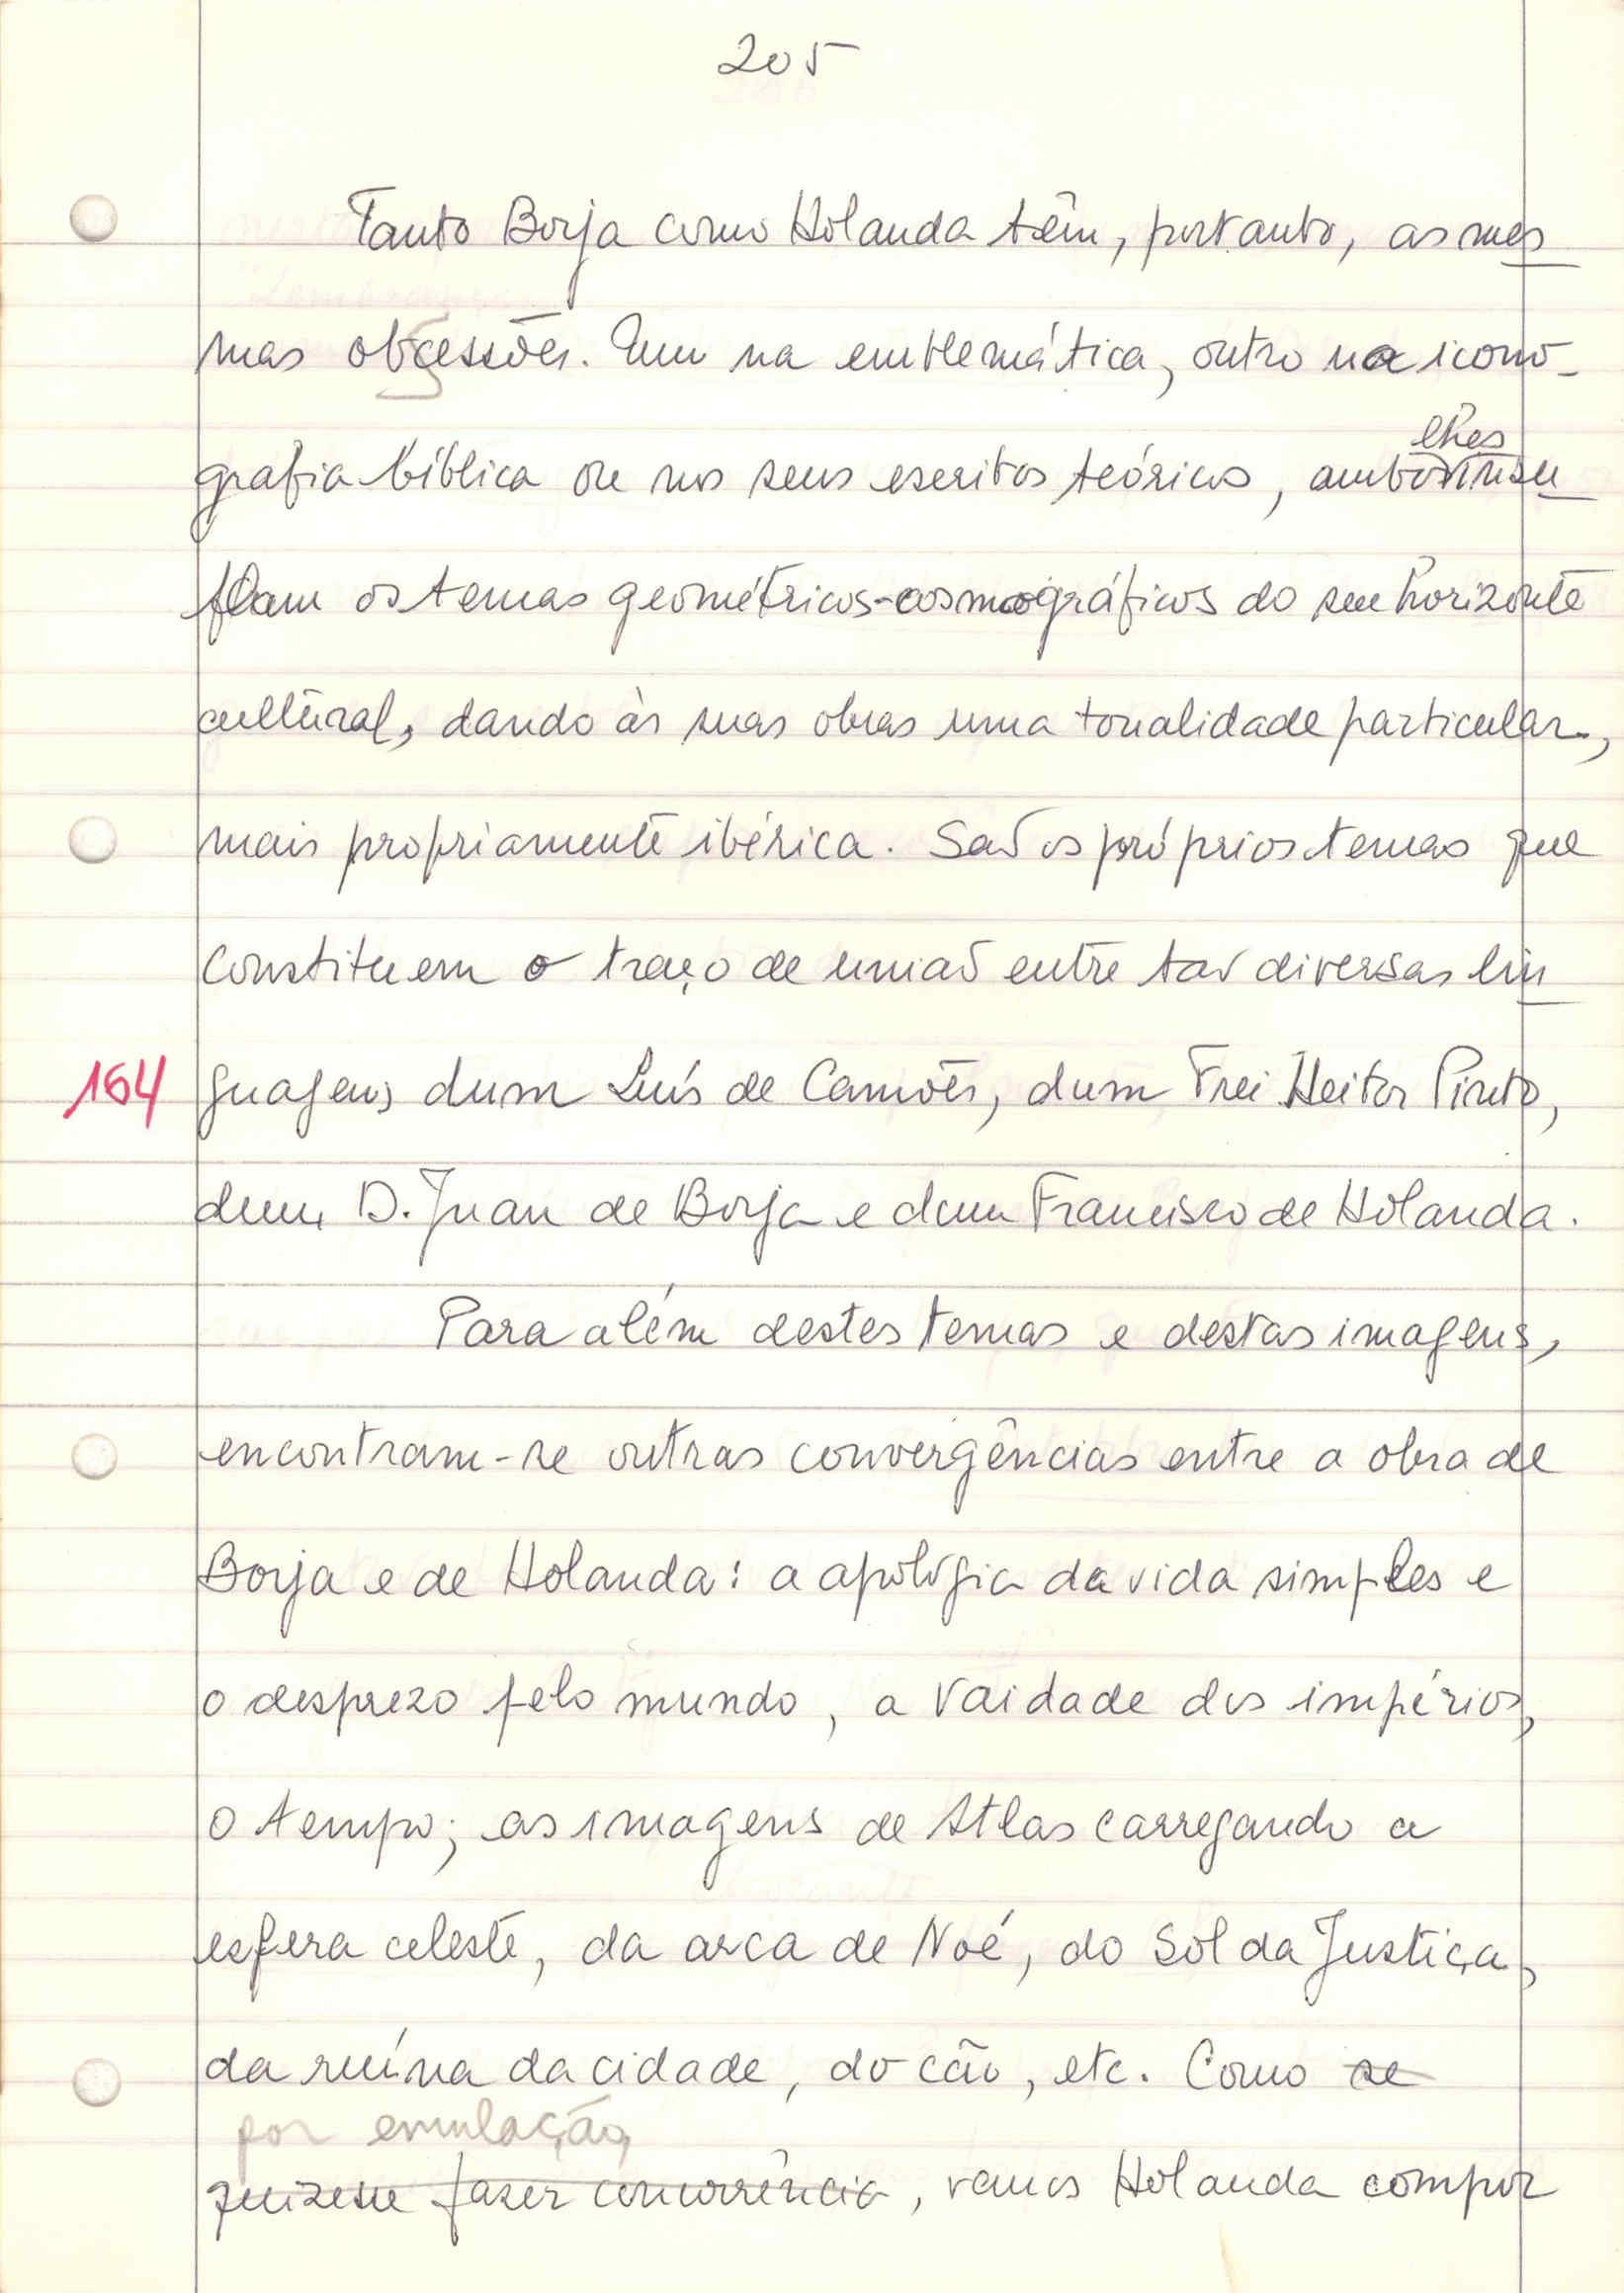 205
Tanto Borja como Holanda têm, portanto, as mes
mas obcessões. Um na emblemática, outro na icono-
grafia bíblica ou nos seus escritos teóricos, ambos lhes insu
flam os temas geométricos-cosmográficos do seu horizonte
cultural, dando às suas obras uma tonalidade particular,
mais propriamente ibérica. São os próprios temas que
constituem o traço de união entre tão diversas lin
164 guagens dum Luís de Camões, dum Frei Heitor Pinto,
dum D. Juan de Borja e dum Francisco de Holanda.
Para além destes temas e destas imagens,
encontram-se outras convergências entre a obra de
Borja e de Holanda: a apologia da vida simples e
o desprezo pelo mundo, a vaidade dos impérios,
o tempo; as imagens de Atlas carregando a
esfera celeste, da arca de Noé, do Sol da Justiça,
da ruína da cidade, do cão, etc. Como se
por emulação,
quizesse fazer concorrência, vemos Holanda compor